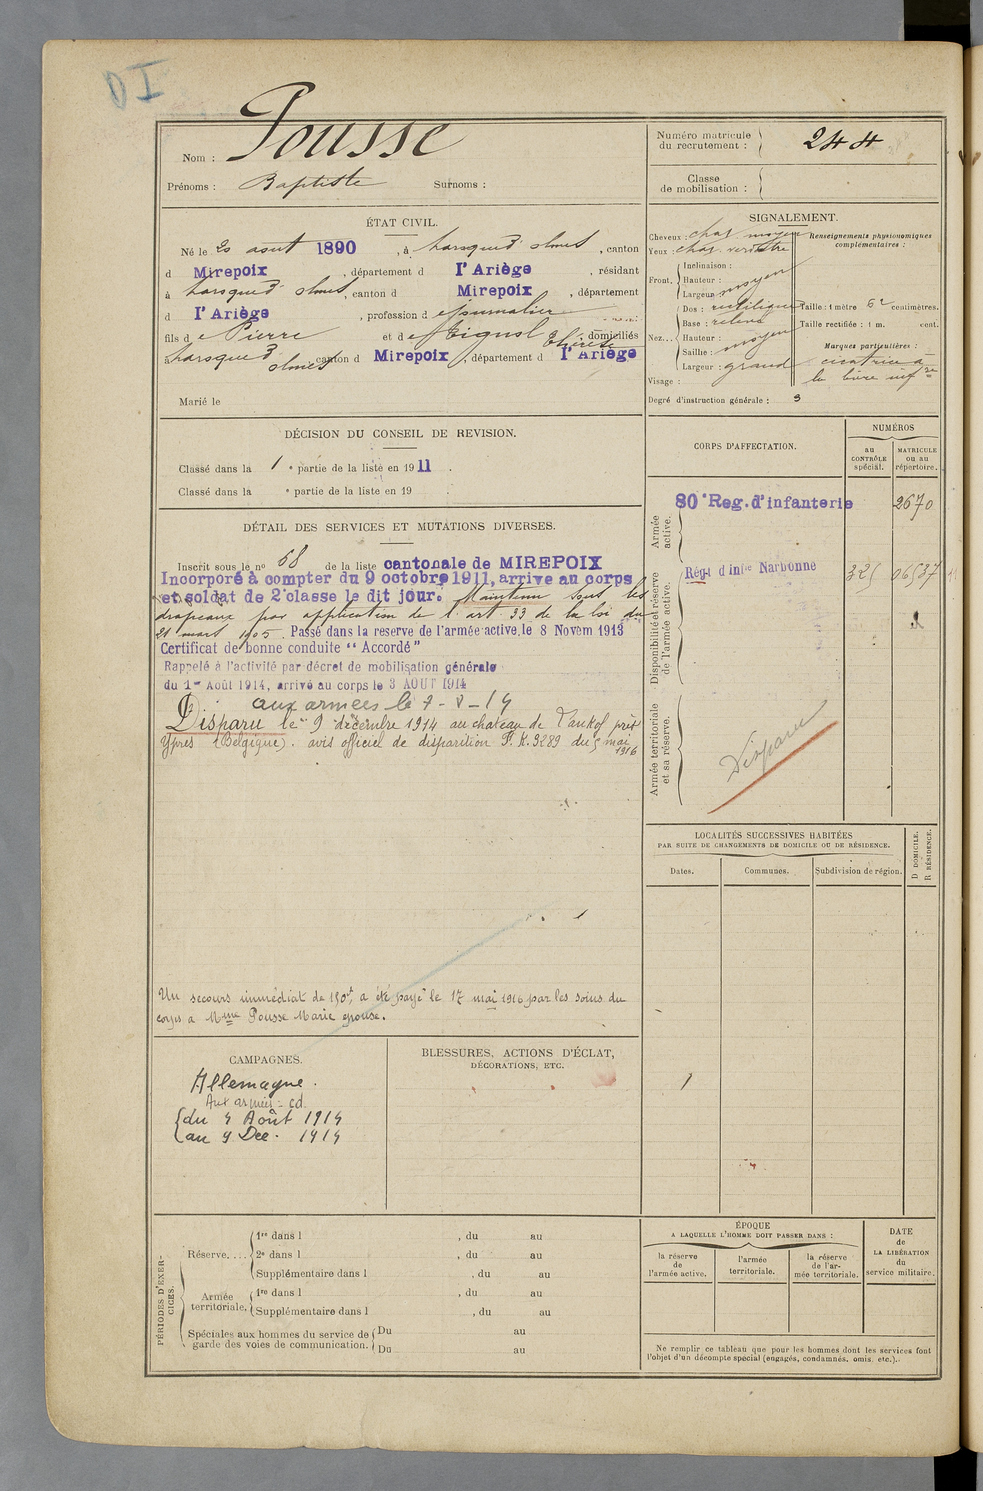 Pousse
Nom :
Prénoms : Baptiste Surnoms :
Numéro matricule
du recrutement : 244
Classe
de mobilisation :
ÉTAT CIVIL.
Né le 20 aout 1890, à Laroque d'olmes, canton
d Mirepoix, département d l'Ariège, résidant
à Laroque d'olmes, canton d Mirepoix, département
d l'Ariège, profession d
fils de Pierre et de domiciliés
à Laroque d'olmes canton d Mirepoix, département d l'Ariège
Marié le
SIGNALEMENT.
Cheveux : chat. moyen
Yeux :
Front. Inclinaison :
Hauteur : moyen
Largeur
Nez... Dos : rectiligne
Base : relevé
Hauteur : moyen
Saillie :
Largeur : grand
Visage :
Degré d'instruction générale : 3
Renseignements physionomiques
complémentaires :
Taille : 1 mètre 62 centimètres.
Taille rectifiée : 1 m. cent.
Marques particulières :
cicatrice à
la lèvre infre
DÉCISION DU CONSEIL DE REVISION.
Classé dans la 1e partie de la liste en 1911.
Classé dans la e partie de la liste en 19 .
DÉTAIL DES SERVICES ET MUTATIONS DIVERSES.
Inscrit sous le no 68 de la liste cantonale de MIREPOIX
Incorporé à compter du 9 octobre 1911, arrive au corps
et soldat de 2e classe le dit jour. Maintenu sous les
drapeaux par application de l'art. 33 de la loi du
21 mars 1905. Passé dans la reserve de l'armée active, le 8 Novem 1913
Certificat de bonne conduite "Accordé"
Rappelé à l'activité par décret de mobilisation générale
du 1er Août 1914, arrivé au corps le 3 AOUT 1914
aux armées le 7-8-14
Disparu le 9 décembre 1914 au chateau de près
Ypres (Belgique). avis officiel de disparition P.K. 9289 du 5 mai
1916
Un secours immédiat de 150f, a été payé le 17 mai 1916 par les soins du
corps à Mme Pousse Marie épouse.
CORPS D'AFFECTATION.
NUMÉROS
au
CONTRÔLE
spécial.
MATRICULE
ou au
répertoire.
Armée
active.
80e Reg. d'infanterie 2670
Disponibilité et réserve
de l'armée active.
Régt d'infie Narbonne 325 06537
Armée territoriale
et sa réserve.
Disparu
LOCALITÉS SUCCESSIVES HABITÉES
PAR SUITE DE CHANGEMENTS DE DOMICILE OU DE RÉSIDENCE.
Dates.
Communes.
Subdivision de région.
D DOMICILE.
R RÉSIDENCE.
CAMPAGNES.
Allemagne.
du 4 Août 1914
au 9 Dec. 1914
BLESSURES, ACTIONS D'ÉCLAT,
DÉCORATIONS, ETC.
PÉRIODES D'EXER-
CICES.
Réserve.... 1re dans l , du au
2e dans l , du au
Supplémentaire dans l , du au
Armée
territoriale. 1re dans l , du au
Supplémentaire dans l , du au
Spéciales aux hommes du service de
garde des voies de communication. Du au
Du au
ÉPOQUE
A LAQUELLE L'HOMME DOIT PASSER DANS :
la réserve
de
l'armée active.
l'armée
territoriale.
la réserve
de l'ar-
mée territoriale.
DATE
de
LA LIBÉRATION
du
service militaire.
Ne remplir ce tableau que pour les hommes dont les services font
l'objet d'un décompte spécial (engagés, condamnés, omis, etc.).